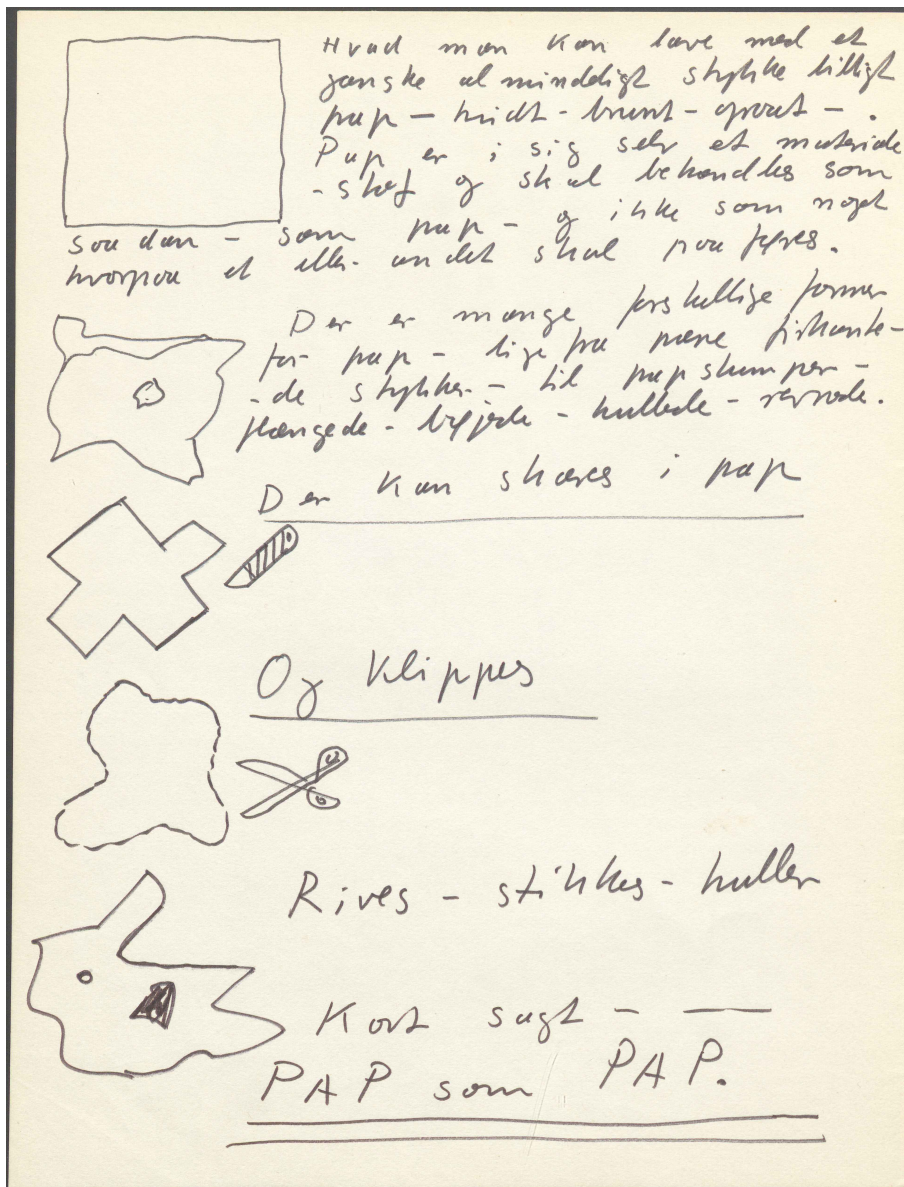 Hvad man kan lave med et
ganske almindeligt stykke billigt
pap — hvidt - brunt - graat - .
Pap er i sig selv et materiale
- stof og skal behandles som
saadan - som pap - og ikke som noget
hvorpaa et eller andet skal paaføres.
Der er mange forskellige former
for pap - lige fra pæne firkante-
- de stykker - til papstumper -
flængede - bøjede - hullede - revnede.
Der kan skæres i pap
Og klippes
Rives - stikkes - huller
Kort sagt - —
PAP som PAP.